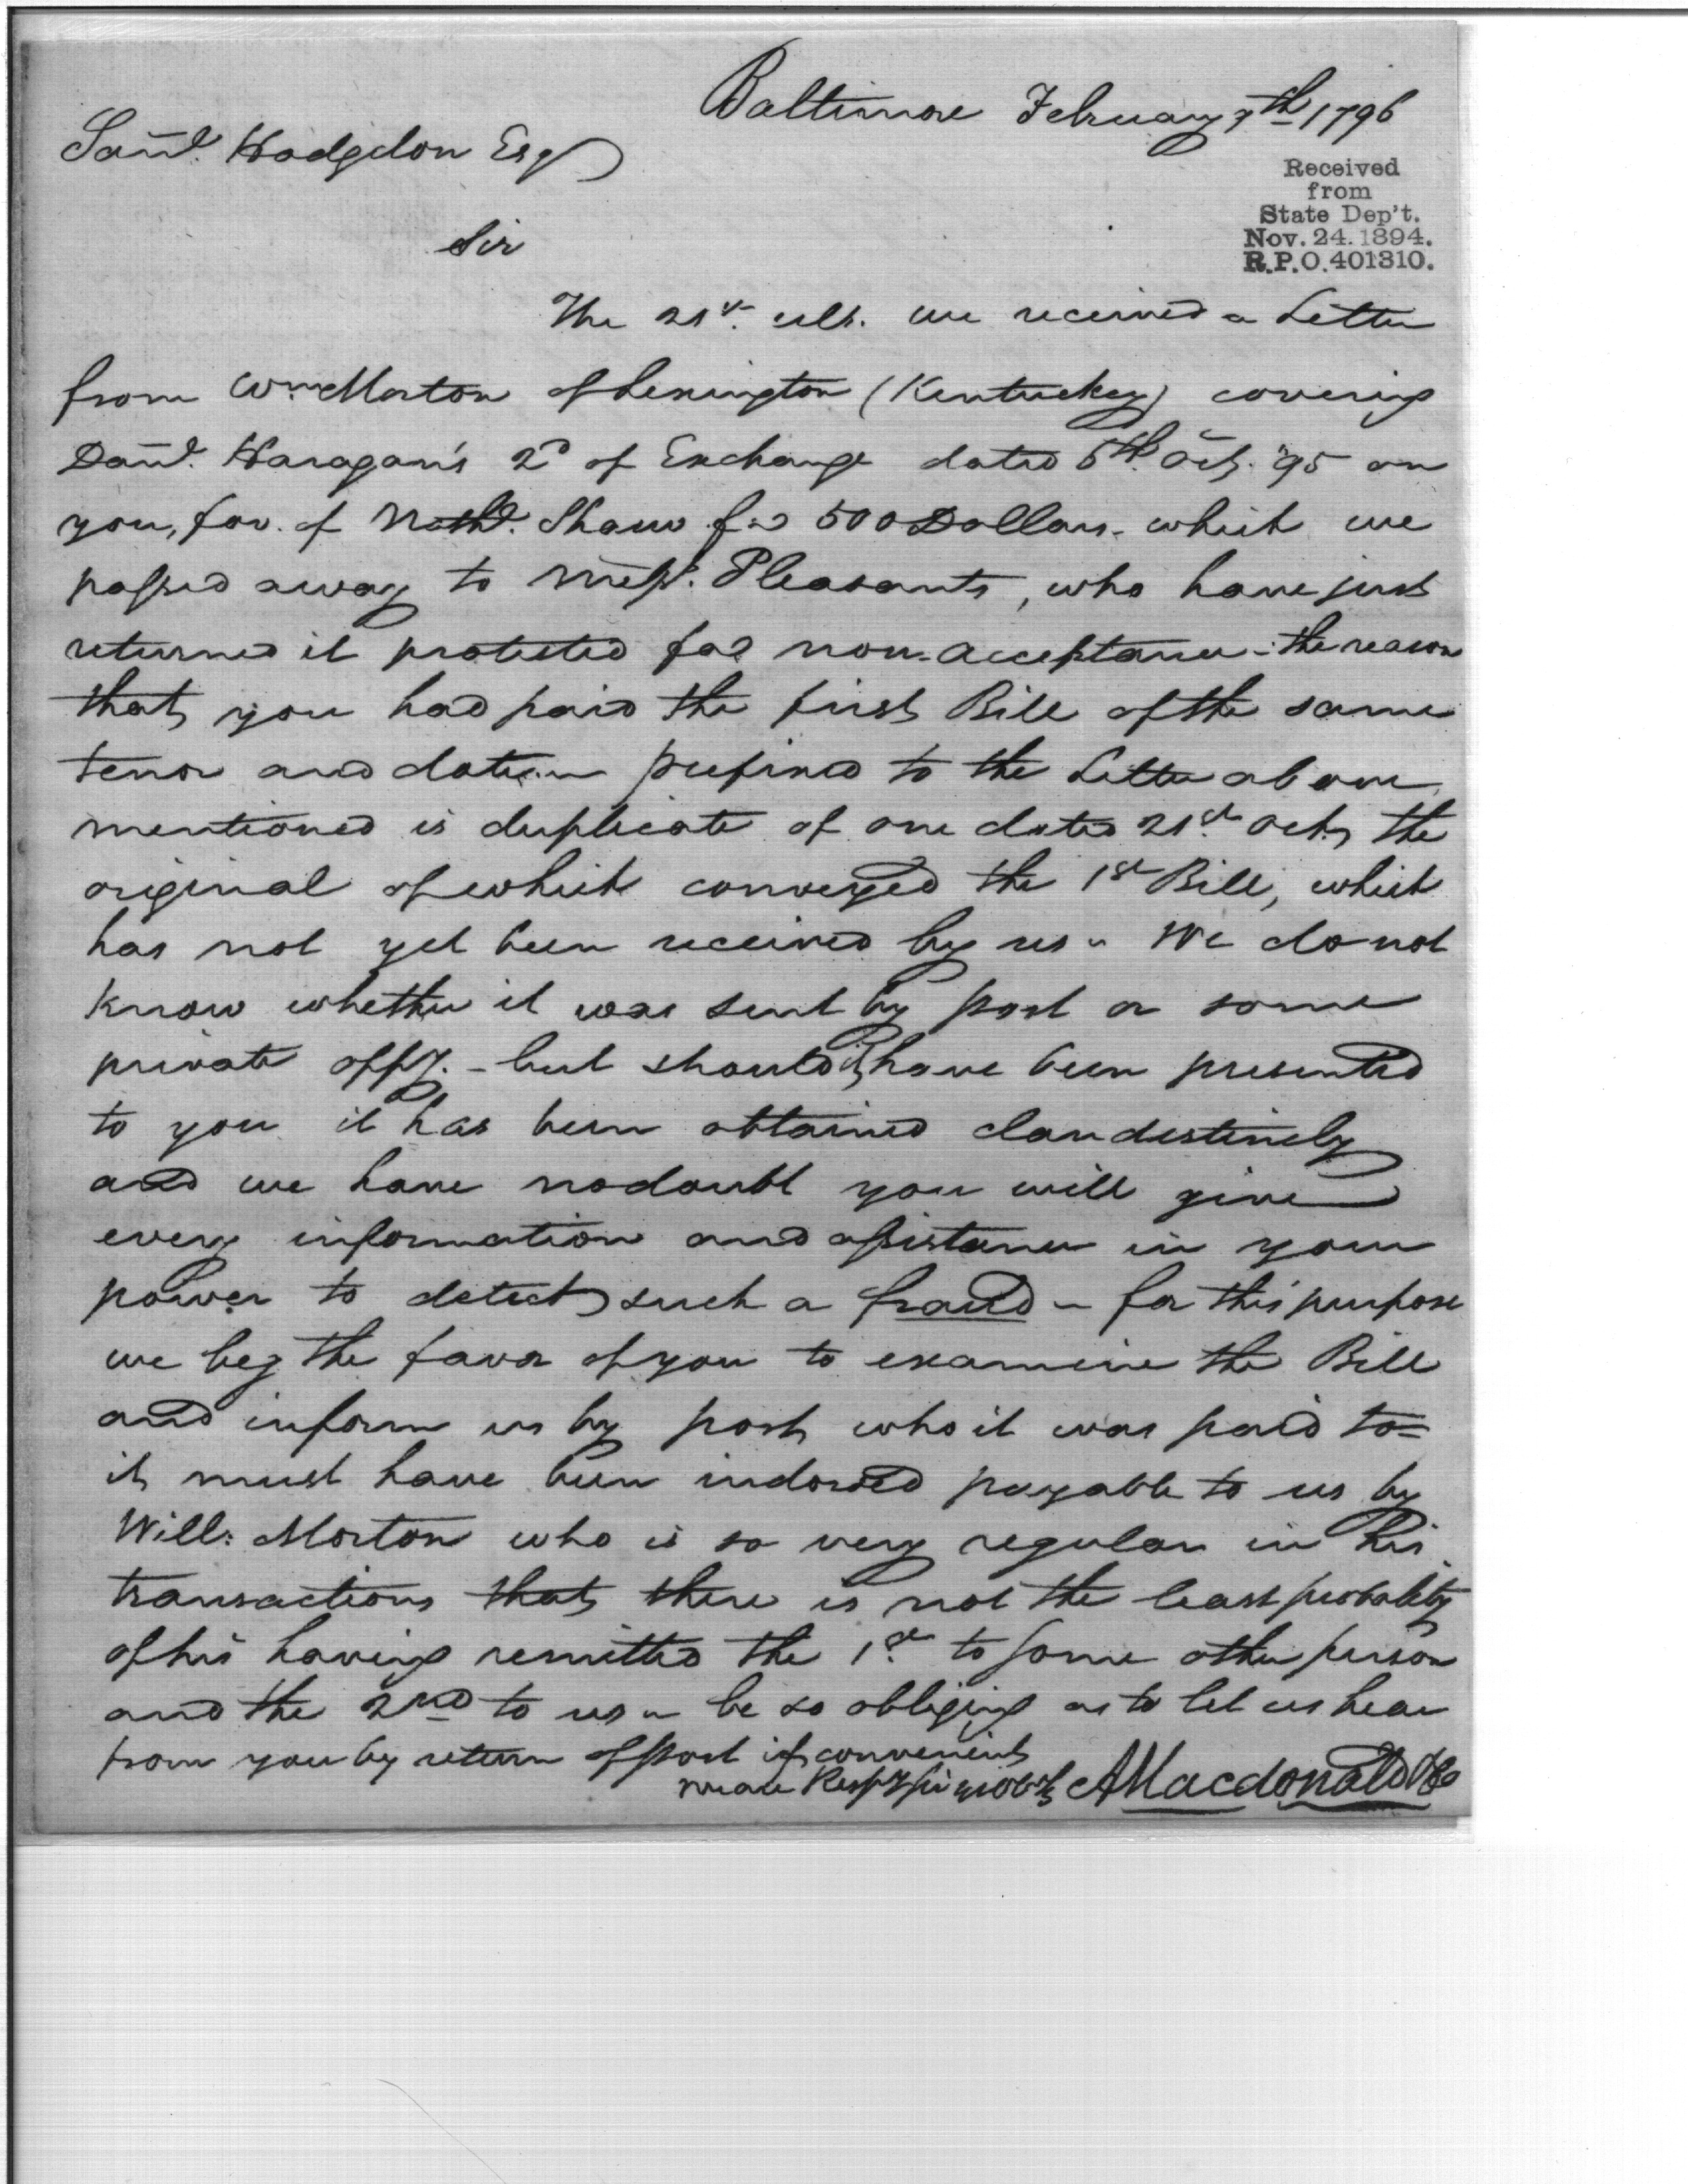 Baltimore February 9th 1796
Saml. Hodgdon Esq
Received
from
State Dep't.
Nov. 24. 1894.
R.P.O. 401310.
Sir
The 21st. ult. we received a Letter
from Wm Morton of Lexington (Kentucky) covering
Danl. Haragan's 2d of Exchange dated 6th. Oct. 95 on
you, fav. of Nathl. Shaw for 500 Dollars - which we
passed away to Messrs. Pleasants, who have just
returned it protested for non-acceptance - the reason
that you had paid the first Bill of the same
tenor and date - prefixed to the Letter above
mentioned is duplicate of one dated 21st. Oct., the
original of which conveyed the 1st Bill, which
has not yet been received by us - We do not
know whether it was sent by post or some
private oppy. - but should it have been presented
to you it has been obtained clandestinely
and we have no doubt you will give
every information and assistance in your
power to detect such a fraud - for this purpose
we beg the favor of you to examine the Bill
and inform us by post who it was paid to =
it must have been indorsed payable to us by
Will: Morton who is so very regular in his
transactions that there is not the least probability
of his having remitted the 1st. to some other person
and the 2nd to us - be so obliging as to let us hear
from you by return of post if convenient
we are Respy Sir yr Obt Sts A Macdonald & Co